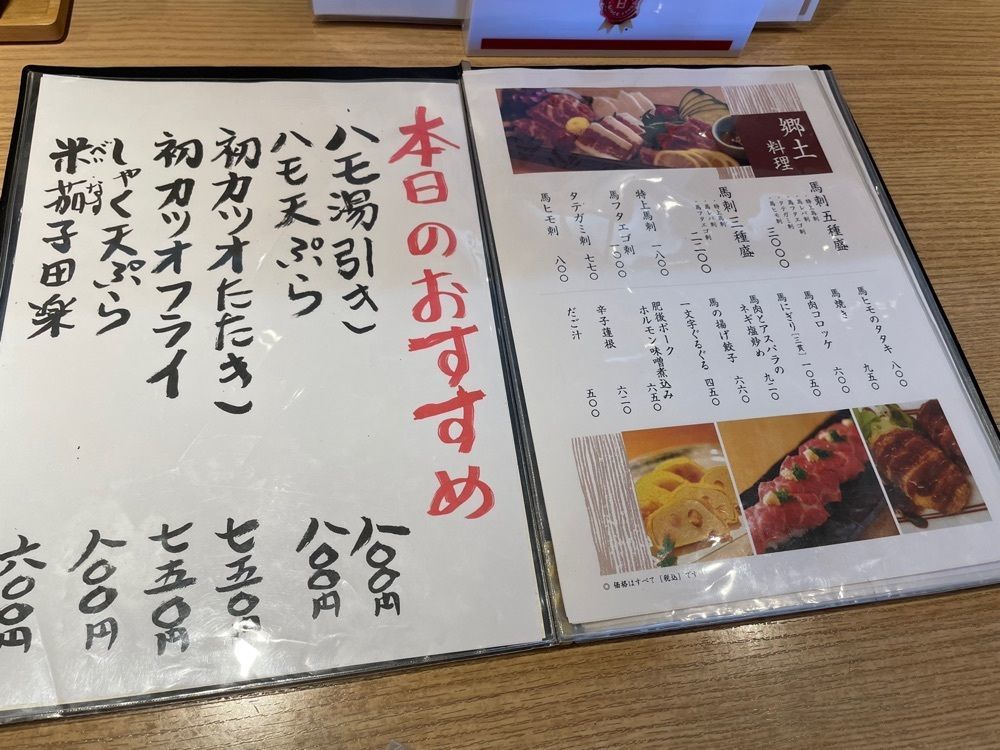 本日のおすすめ
ハモ湯引き 八〇〇円
ハモ天ぷら 八〇〇円
初カツオたたき 七五〇円
初カツオフライ 七五〇円
しゃく天ぷら 八〇〇円
米茄子田楽 六〇〇円
べいなす
郷土
料理
馬刺五種盛
・特上馬刺
・馬レバ刺
・馬フタエゴ刺
・タテガミ刺
・馬ヒモ刺
三〇〇〇
馬刺三種盛
・特上馬刺
・馬レバ刺
・馬フタエゴ刺
特上馬刺 一八〇〇
馬フタエゴ刺 一〇〇〇
タテガミ刺 七七〇
馬ヒモ刺 八〇〇
馬ヒモのタタキ 八〇〇
馬焼き 九五〇
馬肉コロッケ 六〇〇
馬にぎり[三貫] 一〇五〇
馬肉とアスパラの
ネギ塩炒め 九二〇
馬の揚げ餃子 六六〇
一文字ぐるぐる 四五〇
肥後ポーク
ホルモン味噌煮込み 六五〇
辛子蓮根 六二〇
だご汁 五〇〇
◎ 価格はすべて[税込]です